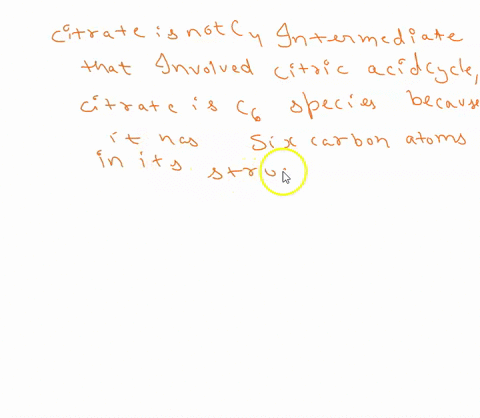 citrate is not C4 Intermediate
that Involved citric acidcycle,
citrate is C6 species because
it has Six carbon atoms
in its